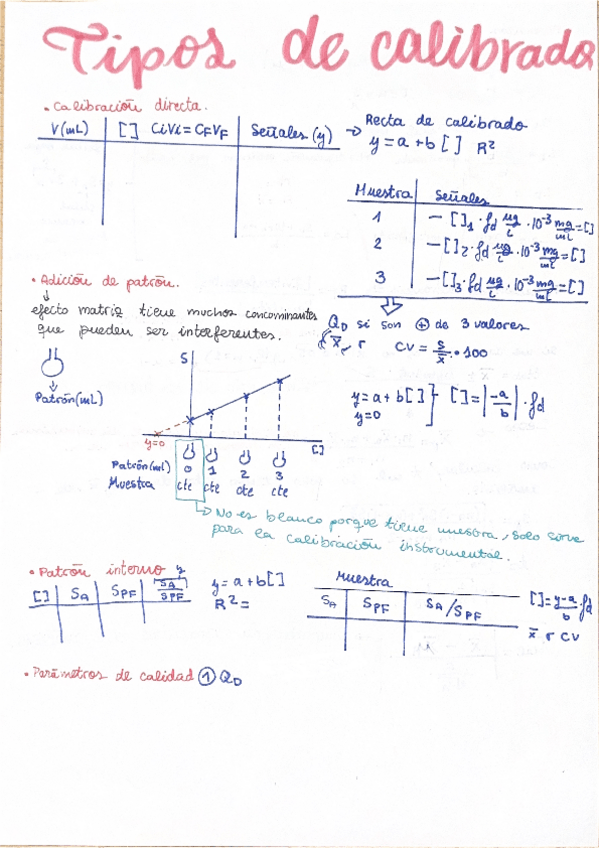 Tipos de calibrado
• Calibración directa.
V(mL) [] CiVi = CFVF Señales (y)
→ Recta de calibrado
y = a + b [] R²
Muestra Señales
1 — []1 · fd µg/L · 10⁻³ mg/mL = []
2 — []2 · fd µg/L · 10⁻³ mg/mL = []
3 — []3 · fd µg/L · 10⁻³ mg/mL = []
QD si son ⊕ de 3 valores
x̄, r CV = s/x̄ · 100
• Adición de patrón.
↓
efecto matriz tiene muchos concominantes
que pueden ser interferentes.
↓
Patrón (mL)
S
[]
y=0
y = a + b [] } [] = |-a/b| · fd
y = 0
Patrón (mL) 0 1 2 3
Muestra cte cte cte cte
→ No es blanco porque tiene muestra, solo sirve
para la calibración instrumental.
• Patrón interno
[] SA SPF SA/SPF
y
y = a + b []
R² =
Muestra
SA SPF SA/SPF
[] = y-a/b · fd
x̄ r CV
• Parámetros de calidad ① QD